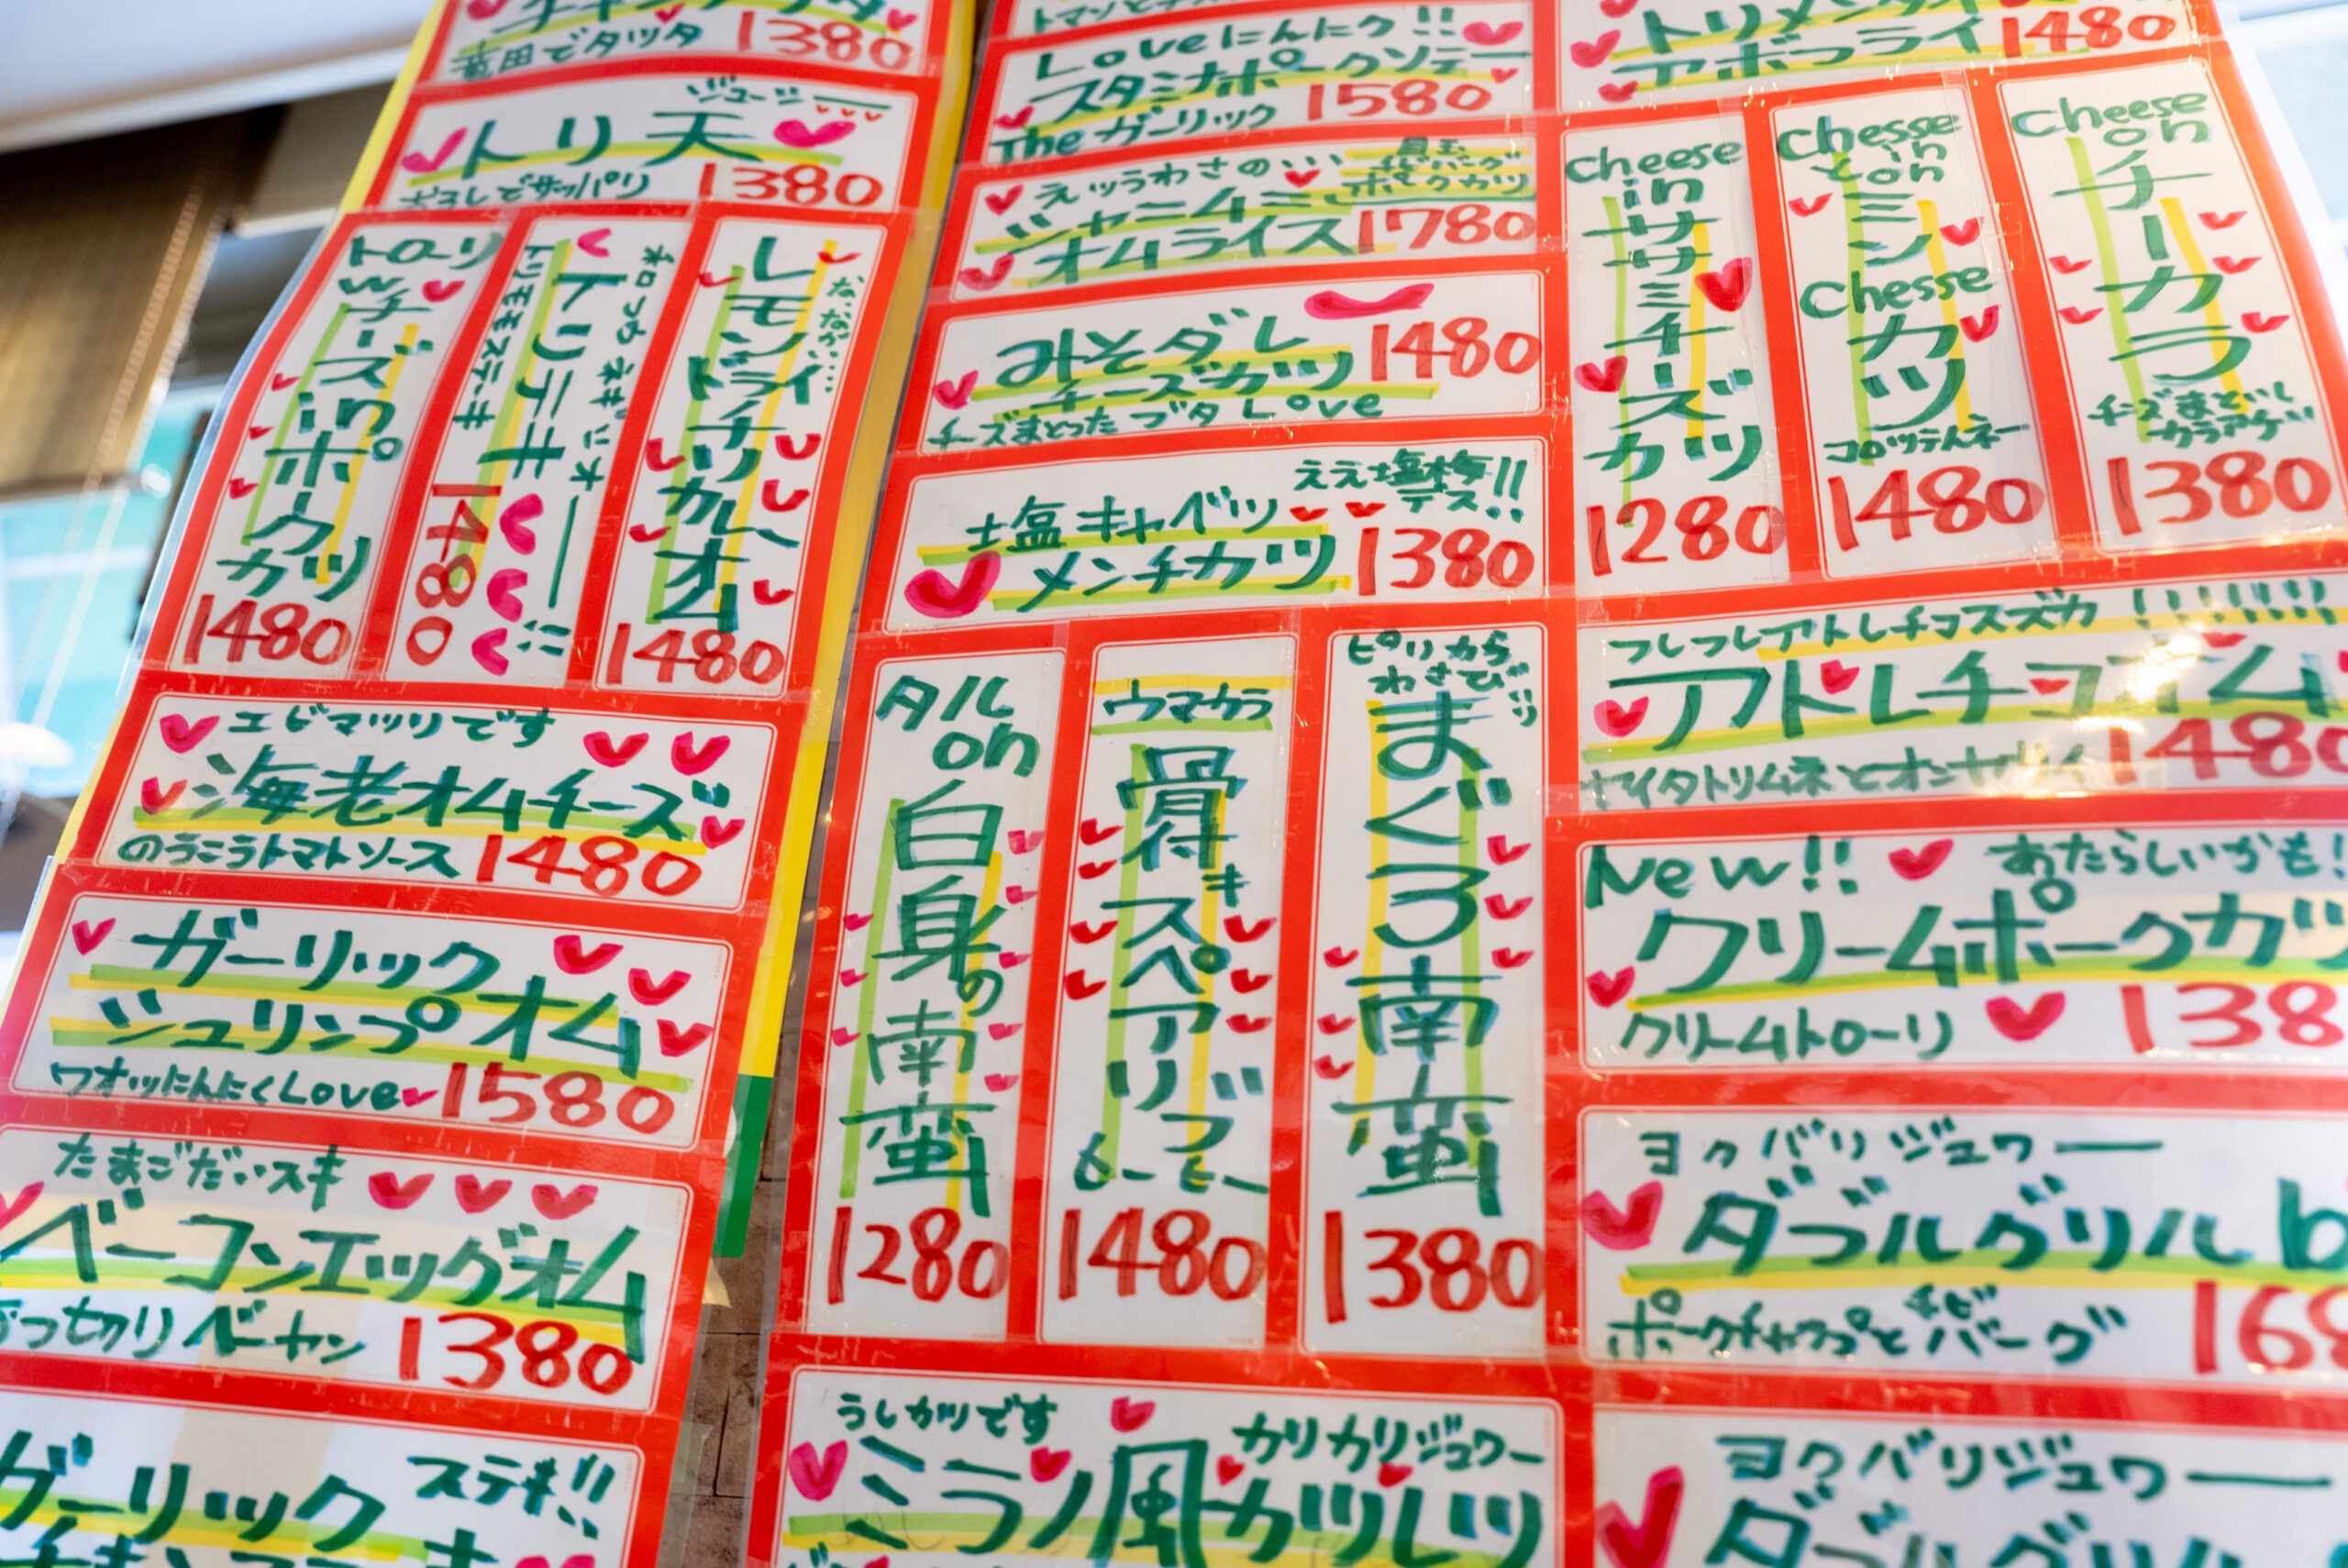 1380
トリ天
ジューシー
1380
トローリ
Wチーズinポークカツ
1480
トリテキ
トリモモステーキ
1480
レモンドライチリカレーオム
1480
エビマツリです
海老オムチーズ
のうこうトマトソース
1480
ガーリック
シュリンプオム
ワオッにんにくLove
1580
たまごだいスキ
ベーコンエッグオム
ぶつ切りベーヤン
1380
ステキ!!
ガーリック
Loveにんにク!!
スタミナポークソテー
The ガーリック
1580
えッうわさの...
目玉
チビバーグ
ポークカツ
ジャニムミ
オムライス
1780
みそダレ
チーズカツ
1480
チーズまとったブタ Love
ええ塩梅
デス!!
塩キャベツ
メンチカツ
1380
タルon白身の南蛮
1280
ウマカラ
骨付きスペアリブ
1480
ピリから
わさび
まぐろ南蛮
1380
うしカツです
カリカリジュワー
ミラノ風カツレツ
トリメンチ
1480
cheese in ササミチーズカツ
1280
chesse in と on ミンchesseカツ
1480
cheese on チーカラ
チーズまといし
カラアゲ
1380
アトレチコオム
1480
New!!
あたらしいかも!
クリームポークカツ
クリームトローリ
138
ヨクバリジュワー
ダブルグリル
ポークチャップとチビバーグ
168
ヨクバリジュワー
ダブルグリル